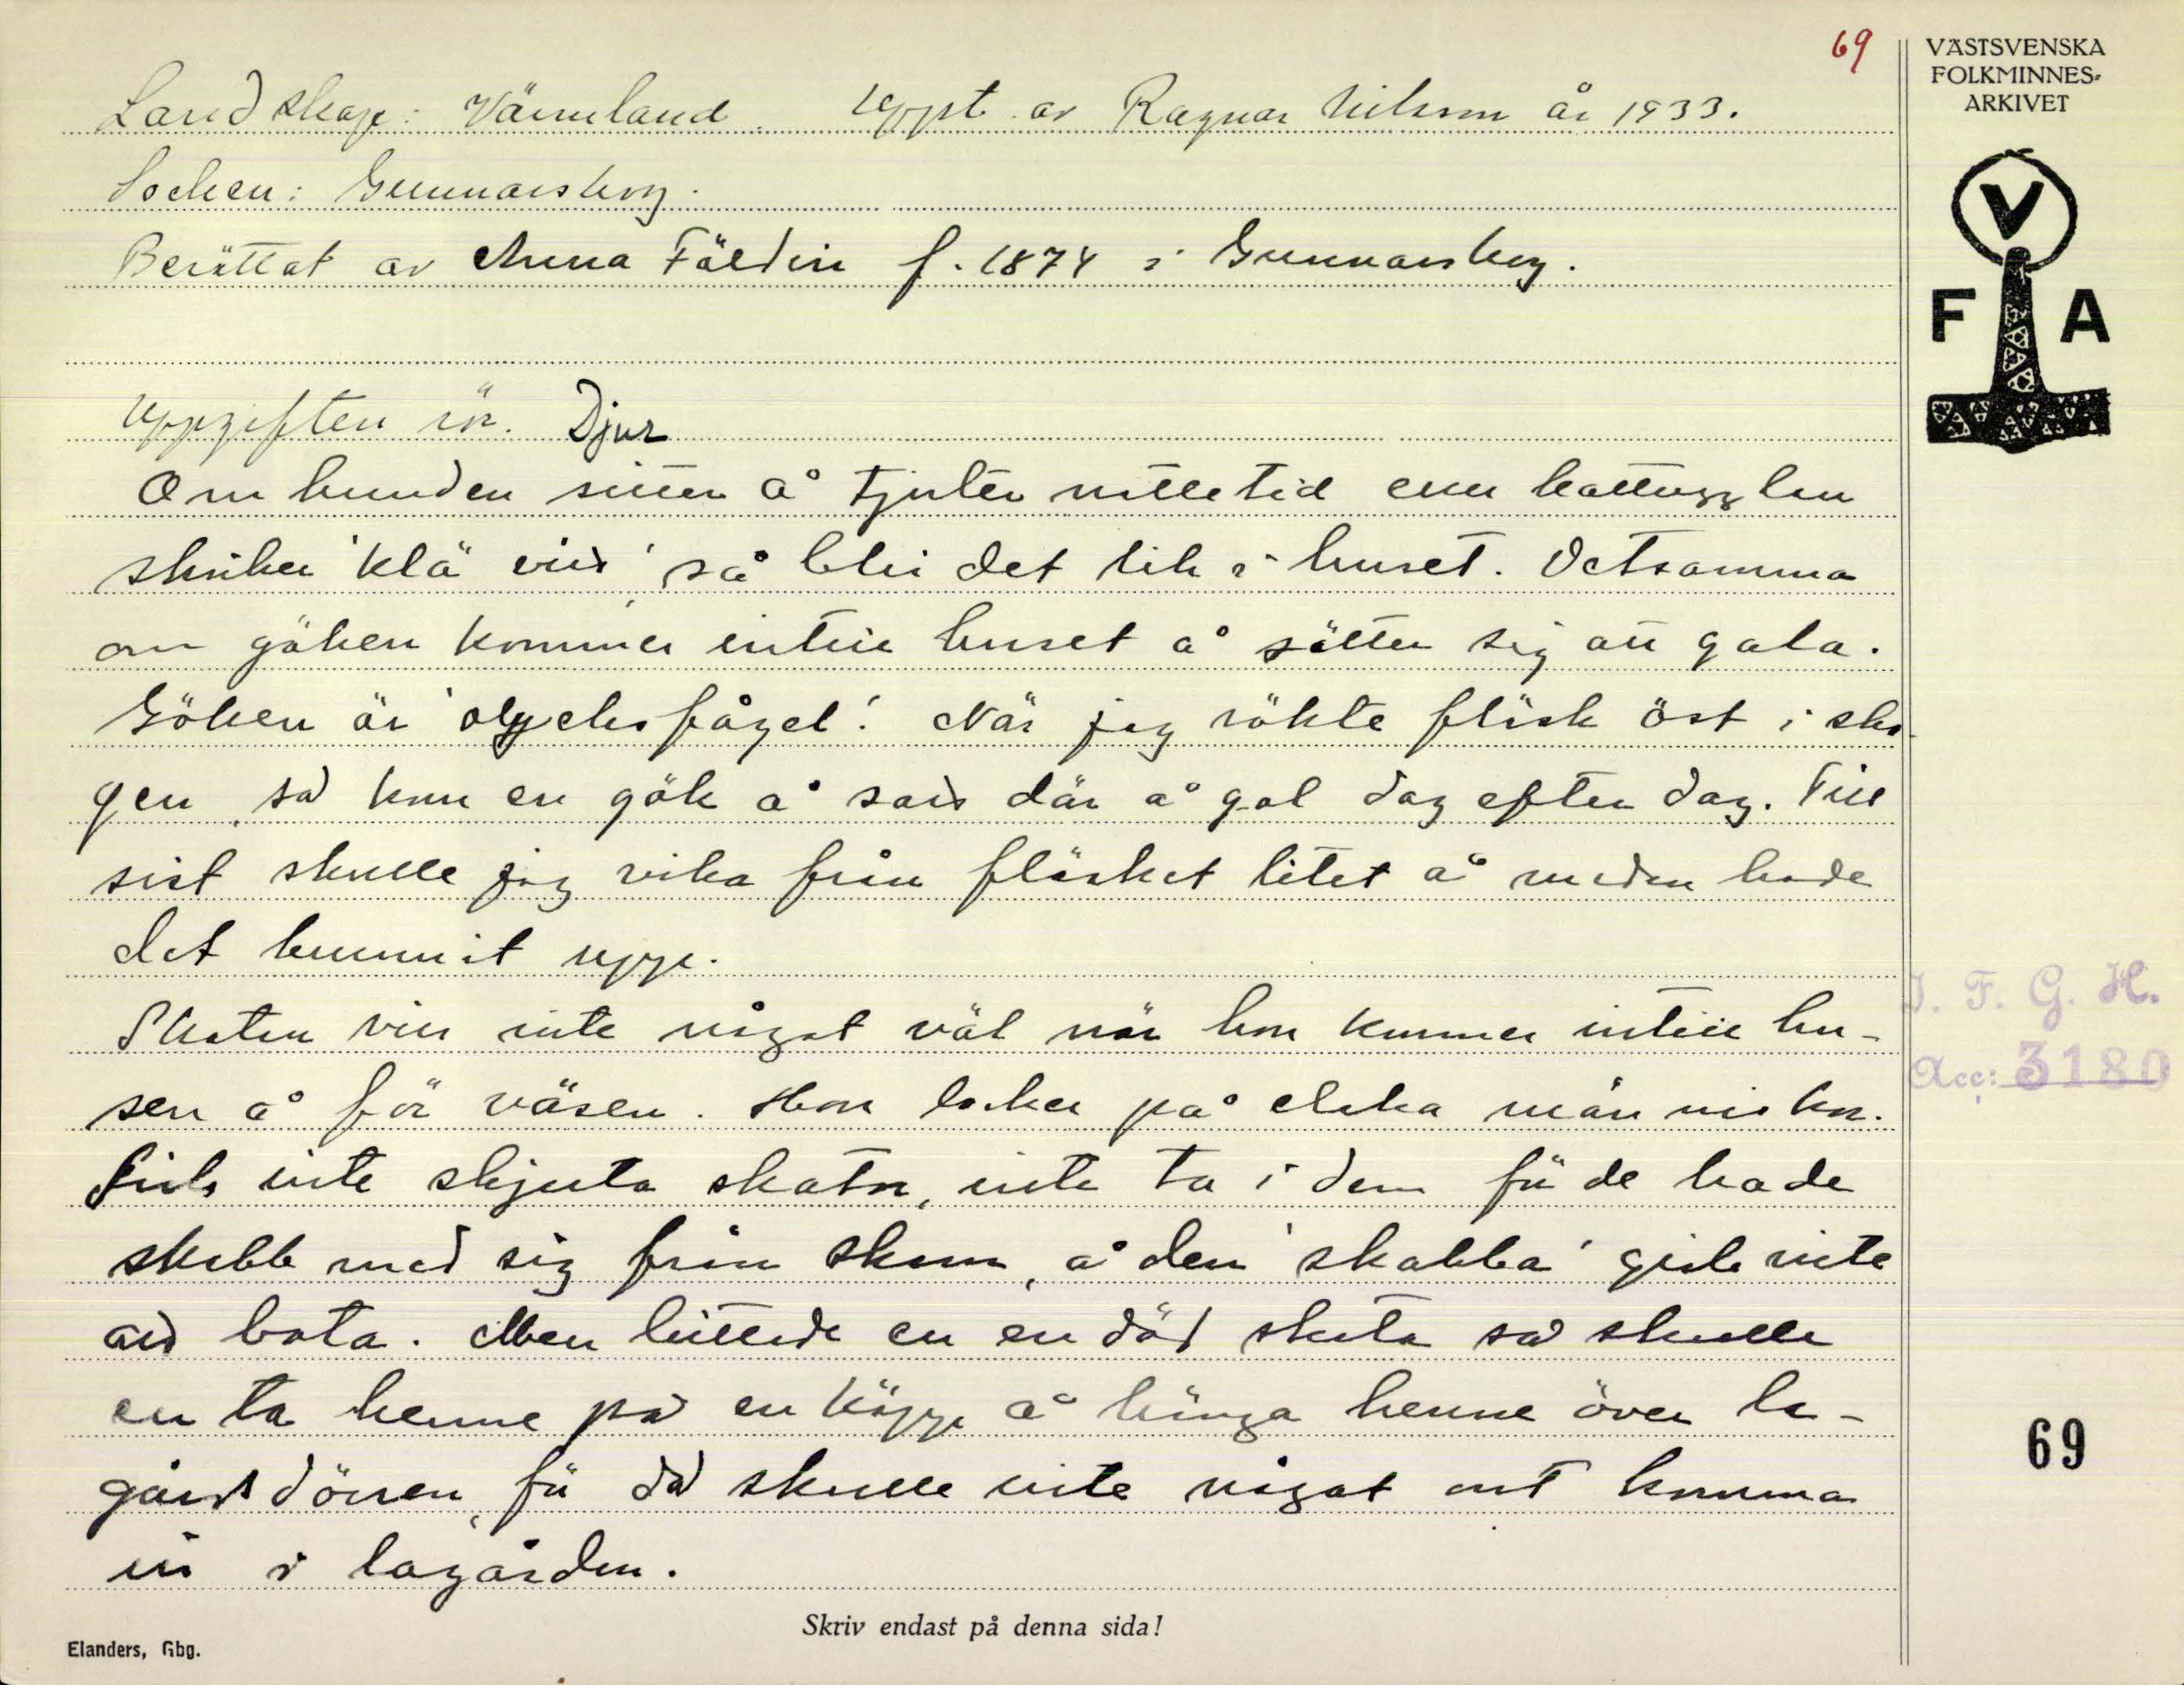 69
VÄSTSVENSKA
FOLKMINNES-
ARKIVET
Landskap: Värmland. Uppt. av Ragnar Nilsson år 1933.
Socken: Gunnarskog.
Berättat av Anna Fäldin f. 1874 i Gunnarskog.
V
F A
Uppgiften rör. Djur
Om hunden sitter å tjuter nittetid eller kattugglen
skriker 'klä vid' så blir det lik i huset. Detsamma
om göken kommer intill huset å sätter sig att gala.
Göken är 'olycksfågel'. När jag rökte fläsk öst i sko-
gen så kom en gök å satt där å gol dag efter dag. Till
sist skulle jag vika från fläsket litet å medan hade
det brunnit upp.
Skaten vill inte något väl när hon kommer intill hu-
sen å för väsen. Hon locker på elaka människor.
Fick inte skjuta skator, inte ta i dem för de hade
skabb med sig från skam, å den 'skabba' gick inte
att bota. Men hittade en en död skata så skulle
en ta henne på en käpp å hänga henne över la-
gårdsdörren, för då skulle inte något ont komma
in i lagården.
I. F. G. H.
Acc: 3180
69
Skriv endast på denna sida!
Elanders, Gbg.